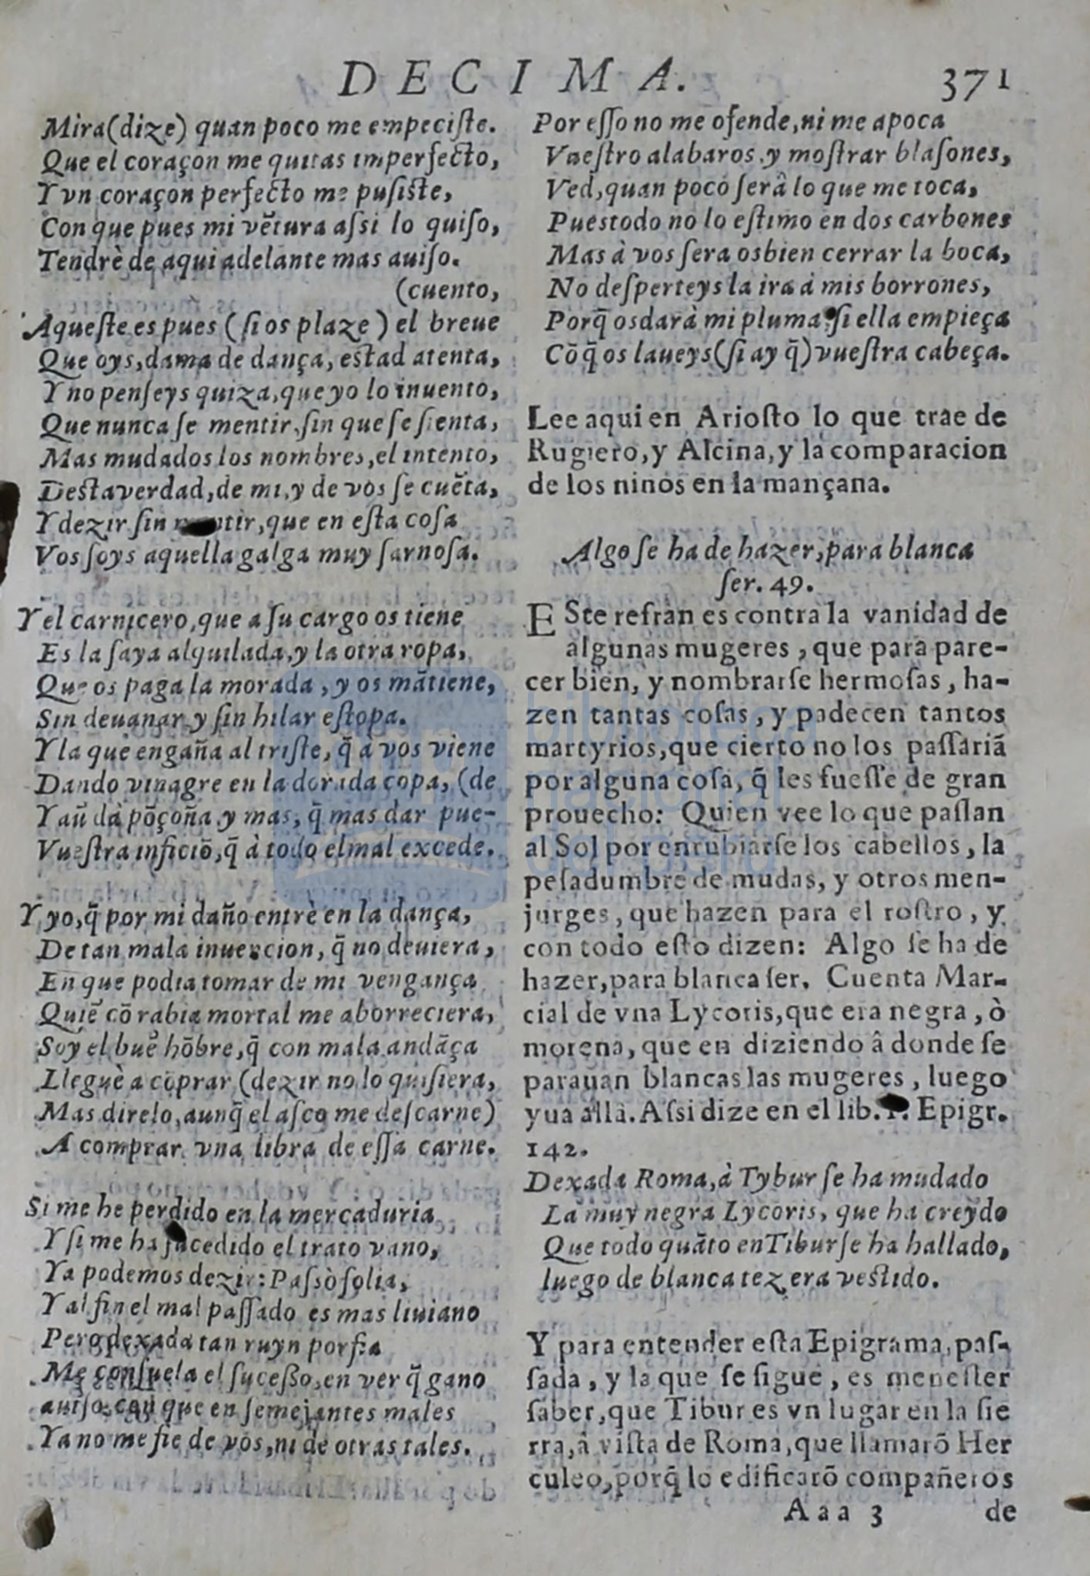 DECIMA. 371
Mira(dize) quan poco me empeciste.
Que el coraçon me quitas imperfecto,
Y vn coraçon perfecto me pusiste,
Con que pues mi vẽtura assi lo quiso,
Tendrè de aqui adelante mas auiso.
(cuento,
Aqueste es pues (si os plaze) el breue
Que oys, dama de dança, estad atenta,
Y no penseys quiza, que yo lo inuento,
Que nunca se mentir, sin que se sienta,
Mas mudados los nombres, el intento,
Desta verdad, de mi, y de vos se cuẽta,
Y dezir sin que en esta cosa
Vos soys aquella galga muy sarnosa.
Y el carnicero, que a su cargo os tiene
Es la saya alquilada, y la otra ropa,
Que os paga la morada, y os mãtiene,
Sin deuanar y sin hilar estopa.
Y la que engaña al triste, q̃ a vos viene
Dando vinagre en la dorada copa, (de
Y aũ dà põçoña y mas, q̃ mas dar pue-
Vuestra inficiõ, q̃ à todo el mal excede.
Y yo, q̃ por mi daño entrè en la dança,
De tan mala inuencion, q̃ no deuiera,
En que podia tomar de mi vengança
Quiẽ cõ rabia mortal me aborreciera,
Soy el buẽ hõbre, q̃ con mala andãça
Lleguè a cõprar (dezir no lo quisiera,
Mas direlo, aunq̃ el asco me descarne)
A comprar vna libra de essa carne.
Si me he perdido en la mercaduria
Y si me ha sucedido el trato vano,
Ya podemos dezir: Passò solia,
Y al fin el mal passado es mas liuiano
Pero dexada tan ruyn porfia
Me consuela el sucesso, en ver q̃ gano
auiso, con que en semejantes males
Ya no me fie de vos, ni de otras tales.
Por esso no me ofende, ni me apoca
Vuestro alabaros, y mostrar blasones,
Ved, quan poco serâ lo que me toca,
Pues todo no lo estimo en dos carbones
Mas à vos sera os bien cerrar la boca,
No desperteys la ira á mis borrones,
Porq̃ os darà mi pluma, si ella empieça
Cõ q̃ os laueys (si ay q̃) vuestra cabeça.
Lee aqui en Ariosto lo que trae de
Rugiero, y Alcina, y la comparacion
de los niños en la mançana.
Algo se ha de hazer, para blanca
ser. 49.
ESte refran es contra la vanidad de
algunas mugeres, que para pare-
cer bien, y nombrarse hermosas, ha-
zen tantas cosas, y padecen tantos
martyrios, que cierto no los passariã
por alguna cosa, q̃ les fuesse de gran
prouecho: Quien vee lo que passan
al Sol por enrubiarse los cabellos, la
pesadumbre de mudas, y otros men-
jurges, que hazen para el rostro, y
con todo esto dizen: Algo se ha de
hazer, para blanca ser. Cuenta Mar-
cial de vna Lycoris, que era negra, ò
morena, que en diziendo â donde se
parauan blancas las mugeres, luego
yua alla. Assi dize en el lib. Epigr.
142.
Dexada Roma, à Tybur se ha mudado
La muy negra Lycoris, que ha creydo
Que todo quãto en Tibur se ha hallado,
luego de blanca tez era vestido.
Y para entender esta Epigrama, pas-
sada, y la que se sigue, es menester
saber, que Tibur es vn lugar en la sie
rra, â vista de Roma, que llamarõ Her
culeo, porq̃ lo edificarõ compañeros
Aaa 3 de